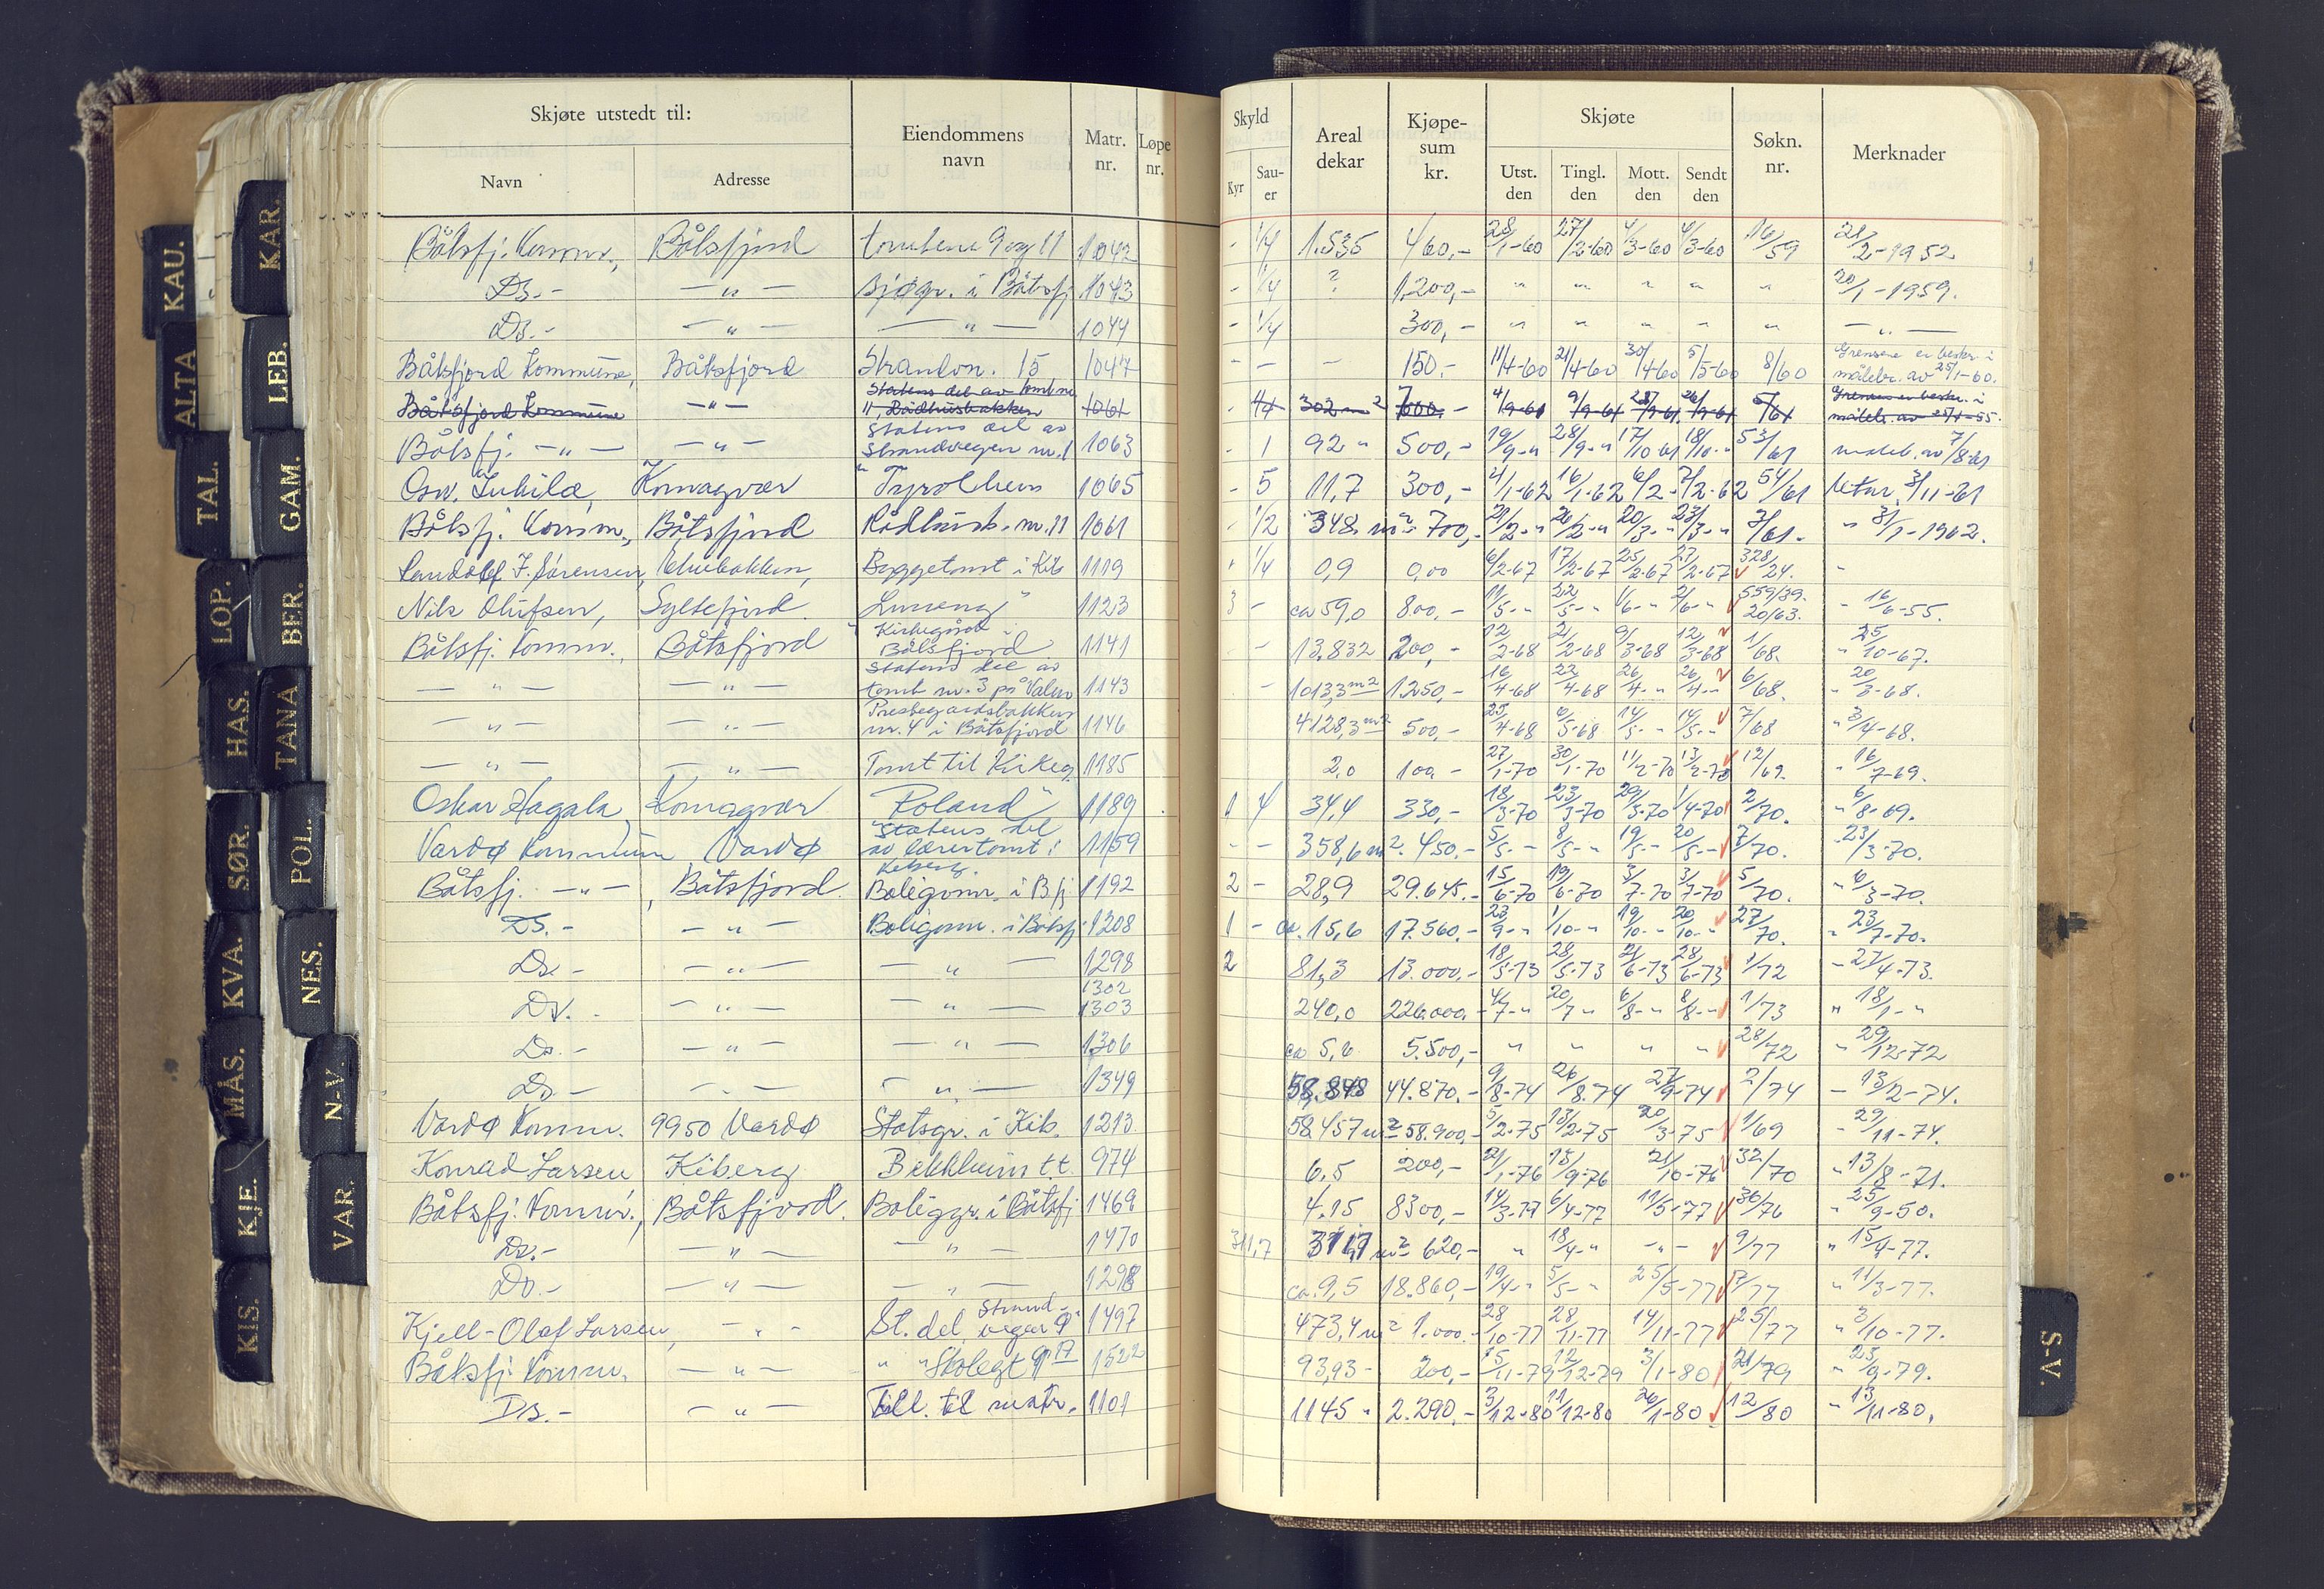 Skjøte utstedt til:
Navn
Adresse
Eiendommens navn
Matr. nr.
Løpe nr.
Skyld
Kyr
Sau-er
Areal dekar
Kjøpe-sum kr.
Skjøte
Utst. den
Tingl. den
Mott. den
Sendt den
Søkn. nr.
Merknader
Båtsfj. Komm., Båtsfjord tomtene 9 og 11 1042 - 1/4 1.535 460,- 28/1-60 27/2-60 4/3-60 4/3-60 16/59 21/2-1952
Do.- — " — sjøgr. i Båtsfj 1043 - 1/4 ? 1.200,- " " " " " 20/1-1959.
Do.- — " — — " — 1044 - 1/4 300,- " " " " " — " —
Båtsfjord Kommune, Båtsfjord Strandvn. 15 1047 - — - 150.- 11/4-60 21/4-60 30/4-60 5/5-60 8/60 Grensene er beskr. i målebr. av 25/1-60.
Båtsfjord Kommune — " — Statens del av tomt nr 11, Rådhusbakken 1061 302 m2 /61 Grensene er beskr. i målebr. av
Båtsfj. — " — — " — Statens del av Strandvegen nr. 1 1063 - 1 92 " 500,- 19/9-" 28/9-" 17/10-61 18/10-" 53/61 måleb. av 7/8-61
Osv. Komagvær "Tyrolheim 1065 - 5 11,7 300,- 4/1-62 16/1-62 6/2-" 7/2-62 54/61 3/11-61
Båtsfj. Komm., Båtsfjord Rådhusb. nr. 11 1061 - 1/2 348 m2 700,- 20/3-" 23/3-" 3/61. " 31/1-1962.
J. Sørensen, Byggetomt i Kib 1119 1/4 0,9 0,00 6/2-67 17/2-67 25/2-67 27/2-67 328/24. -
Nils Olufsen, Syltefjord. 1123 3 - ca 59,0 800,- 11/5-" 22/5-" 1/6-" 2/6-" 559/39. 20/63. " 16/6-55.
Båtsfj. Komm., Båtsfjord "Kirkegård i Båtsfjord 1141 - 13.832 200,- 12/2-68 21/2-68 9/3-68 12/3-68 1/68. " 25/10-67.
— " — — " — Statens del av tomt nr. 3 på Valen 1143 - 1013,3 m2 1.250,- 16/4-68 22/4-68 26/4-" 26/4-" 6/68. " 20/3-68.
— " — — " — Prestegardsbakken nr. 4 i Båtsfjord 1146 4128,3 m2 500,- 25/4-68 6/5-68 14/5-" 14/5-" 7/68 " 3/4-68.
— " — — " — Tomt til Kirkeg. 1185 2,0 100,- 27/1-70 30/1-70 11/2-70 13/2-70 12/69. " 16/7-69.
Oskar Hagala, Komagvær "Roland" 1189 1 4 34,4 330,- 18/3-70 23/3-70 29/3-70 1/4-70 2/70. " 6/8-69.
Vardø Kommune, Vardø Statens del av lærertomt i Kiberg. 1159 - - 358,6 m2. 450.- 5/5-" 8/5-" 19/5-" 20/5-" 7/70. " 23/3-70.
Båtsfj. — " —, Båtsfjord. Boligomr. i Bfj 1192 2 - 28,9 29.645.- 15/6-70 19/6-70 3/7-70 3/7-70 5/70. " 6/3-70.
Do.- — " — Boligomr. i Båtsfj. 1208 1 - ca. 15,6 17.560,- 23/9-" 1/10-" 19/10-" 20/10-" 27/70. " 23/7-70.
Do.- — " — — " — 1298 2 81,3 13.000,- 18/5-73 28/5-73 21/6-73 28/6-73 1/72 - 27/4-73.
Do.- — " — — " — 1302 1303 240,0 226.000,- 4/7-" 20/7-" 6/8-" 8/8-" 1/73 " 18/1-"
Do.- — " — — " — 1306 ca 5,6 5.500,- " " " " 28/72 " 29/12-72
Do.- — " — — " — 1349 58.848 44.870,- 9/8-74 26/8.74 27/9-74 2/74 - 13/2-74.
Vardø Komm. 9950 Vardø Statsgr. i Kib. 1213. 58.457 m2 58.900,- 5/2-75 13/2-75 20/3-75 1/69 " 29/11-74.
Konrad Larsen Kiberg Bekkheim tt. 974 6,5 200,- 21/1-76 15/9-76 21/10-76 32/70 " 13/8-71.
Båtsfj. Komm., Båtsfjord. Boliggr. i Båtsfj 1469 4.15 8300,- 14/3-77 6/4-77 11/5-77 36/76 " 25/9-50.
Do.- — " — — " — 1470 311,7 m2 620,- " 18/4-" -"- 9/77 " 15/4-77.
Do.- — " — — " — 1298 ca. 9,5 18.860,- 19/4-" 5/5-" 25/5-77 /77 " 11/3-77.
Kjell-Olaf Larsen, — " — St. del Strandvegen 9" 1497 473,4 m2 1.000.- 28/10-77 28/11-77 14/11-77 25/77 " 3/10-77.
Båtsfj. Komm. — " — " " Skolegt 9 A 1522 93,93 - 200,- 15/11-79 12/12-79 3/1-80 21/79 " 23/9-79.
Do.- — " — Till. til matr. 1101 1145 " 2.290,- 3/12-80 11/12-80 26/1-80 12/80 " 13/11-80.
KAU.
KAR.
ALTA
LEB.
TAL.
GAM.
LOP.
BER.
HAS.
TANA
SØR.
POL.
KVA.
NES.
MÅS.
N-V.
KJE.
VAR.
KIS.
S-V.